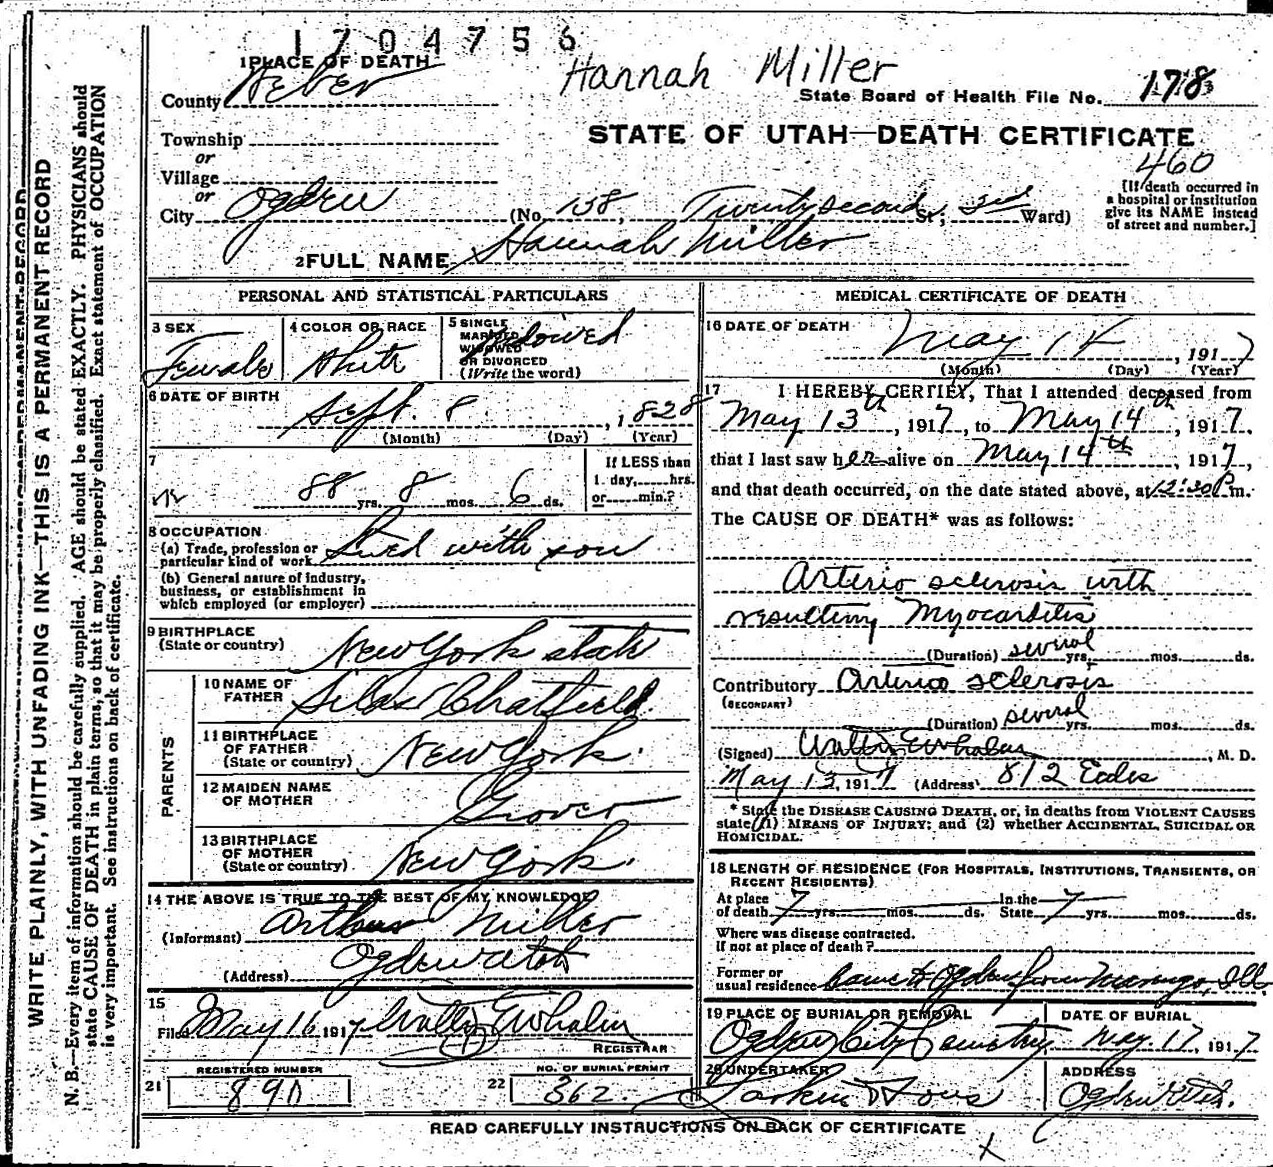 1704756
1 PLACE OF DEATH
Hannah Miller
County Weber
State Board of Health File No. 178
Township
or
STATE OF UTAH—DEATH CERTIFICATE
460
Village
or
City Ogden (No. 158, Twentysecond St.; 3rd Ward)
[If death occurred in
a hospital or institution
give its NAME instead
of street and number.]
2 FULL NAME Hannah Miller
PERSONAL AND STATISTICAL PARTICULARS
3 SEX
Female
4 COLOR OR RACE
White
5 SINGLE
MARRIED
WIDOWED
OR DIVORCED
(Write the word)
Widowed
6 DATE OF BIRTH
Sept. 8, 1828
(Month) (Day) (Year)
7
88 yrs. 8 mos. 6 ds.
If LESS than
1 day,......hrs.
or......min.?
8 OCCUPATION
(a) Trade, profession or
particular kind of work Lived with son
(b) General nature of industry,
business, or establishment in
which employed (or employer)
9 BIRTHPLACE
(State or country) New York state
PARENTS
10 NAME OF
FATHER Silas Chatfield
11 BIRTHPLACE
OF FATHER
(State or country) New York.
12 MAIDEN NAME
OF MOTHER Grover
13 BIRTHPLACE
OF MOTHER
(State or country) New York.
14 THE ABOVE IS TRUE TO THE BEST OF MY KNOWLEDGE
(Informant) Arthur Miller
(Address) Ogden Utah
15
Filed May 16 1917 Walter E Whalen
REGISTRAR
21 REGISTERED NUMBER
890
22 NO. OF BURIAL PERMIT
362
MEDICAL CERTIFICATE OF DEATH
16 DATE OF DEATH
May 14, 1917
(Month) (Day) (Year)
17 I HEREBY CERTIFY, That I attended deceased from
May 13th, 1917, to May 14th, 1917,
that I last saw her alive on May 14th, 1917,
and that death occurred, on the date stated above, at 12:30 P m.
The CAUSE OF DEATH* was as follows:
Arterio sclerosis with
resulting Myocarditis
(Duration) several yrs. mos. ds.
Contributory Arterio sclerosis
(SECONDARY)
(Duration) several yrs. mos. ds.
(Signed) Walter E Whalen, M. D.
May 13, 1917 (Address) 812 Eccles
* State the DISEASE CAUSING DEATH, or, in deaths from VIOLENT CAUSES
state (1) MEANS OF INJURY; and (2) whether ACCIDENTAL, SUICIDAL OR
HOMICIDAL.
18 LENGTH OF RESIDENCE (FOR HOSPITALS, INSTITUTIONS, TRANSIENTS, OR
RECENT RESIDENTS)
At place
of death 7 yrs. mos. ds. In the
State 7 yrs. mos. ds.
Where was disease contracted.
If not at place of death?
Former or
usual residence Came to Ogden from Marengo, Ill
19 PLACE OF BURIAL OR REMOVAL
Ogden City Cemetery
DATE OF BURIAL
May. 17, 1917
20 UNDERTAKER
Larkin & Sons
ADDRESS
Ogden Utah.
READ CAREFULLY INSTRUCTIONS ON BACK OF CERTIFICATE
WRITE PLAINLY, WITH UNFADING INK—THIS IS A PERMANENT RECORD
N. B.—Every item of information should be carefully supplied. AGE should be stated EXACTLY. PHYSICIANS should
state CAUSE OF DEATH in plain terms, so that it may be properly classified. Exact statement of OCCUPATION
is very important. See instructions on back of certificate.